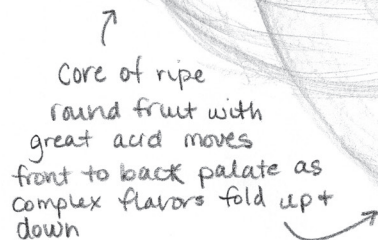 Core of ripe
round fruit with
great acid moves
front to back palate as
complex flavors fold up +
down